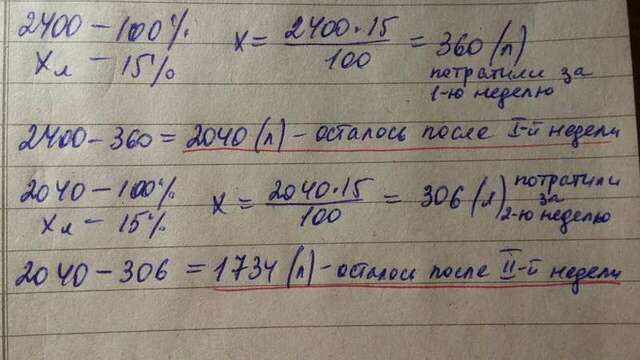 2400 – 100%
x л – 15%
x = 2400·15 / 100 = 360 (л)
потратили за
1-ю неделю
2400 – 360 = 2040 (л) – осталось после I-й недели
2040 – 100%
x л – 15%
x = 2040·15 / 100 = 306 (л)
потратили
за
2-ю неделю
2040 – 306 = 1734 (л) – осталось после II-й недели